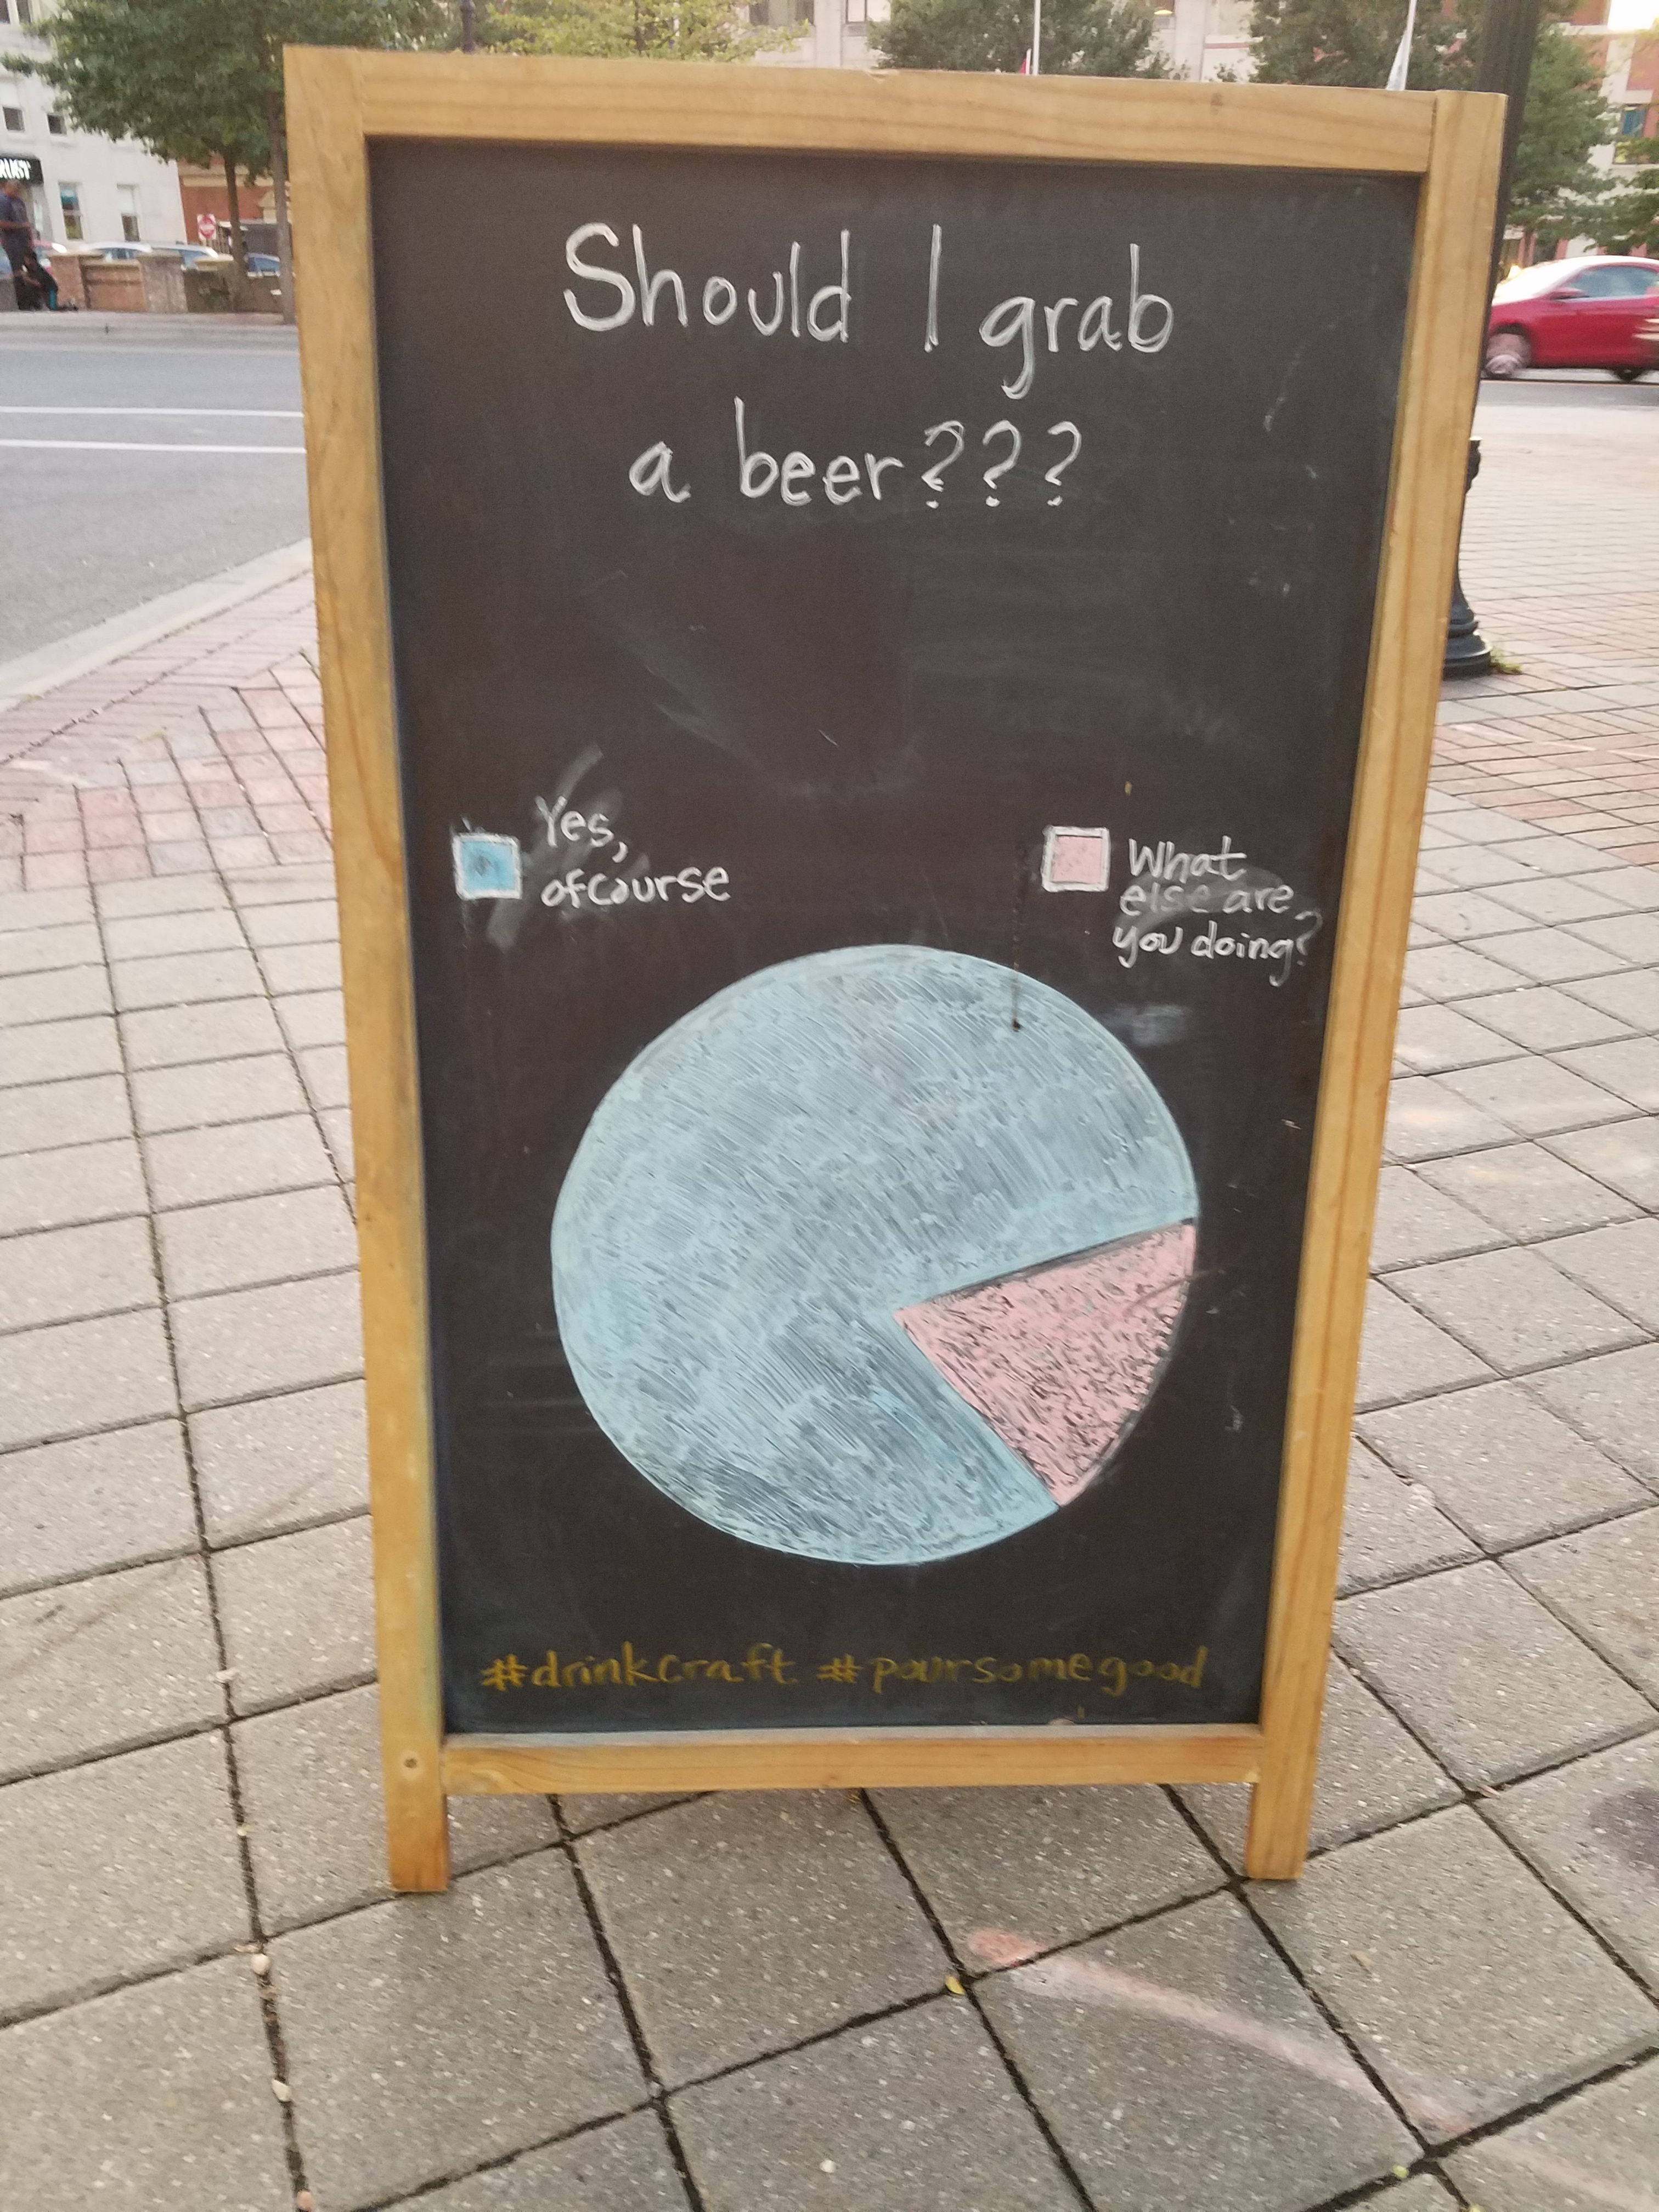 Should I grab
a beer???
Yes,
ofcourse
What
else are
you doing?
#drinkcraft #poursomegood